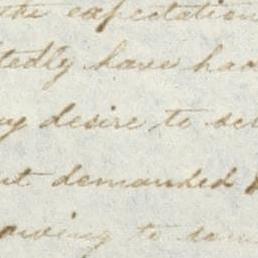 the expectation
tedly have had
desire to se
ut demanded
owing to